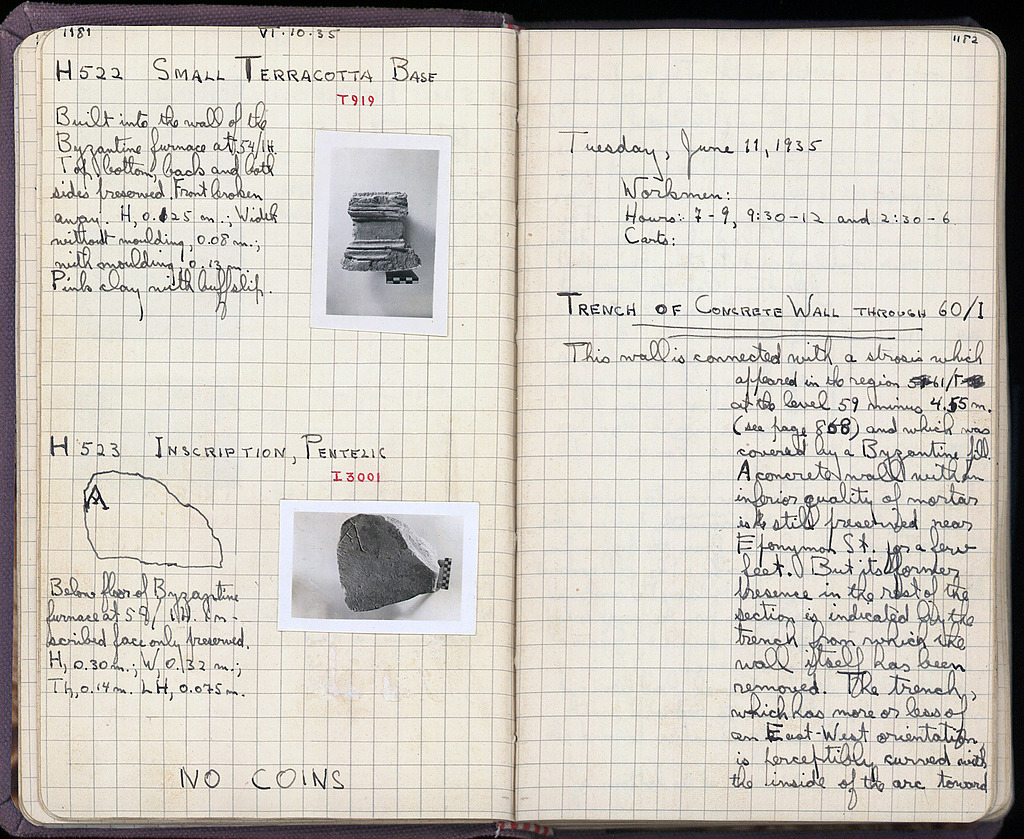 1181
VI·10·35
H 522 SMALL TERRACOTTA BASE
T 919
Built into the wall of the
Byzantine furnace at 54/ΙΗ.
Top, bottom, back and both
sides preserved. Front broken
away. H, 0.125 m.; Width
without moulding, 0.08 m.;
with moulding, 0.13 m.
Pink clay with buff slip.
H 523 INSCRIPTION, PENTELIC
I 3001
A
Below floor of Byzantine
furnace at 59/ΙΗ. In-
scribed face only preserved.
H, 0.30 m.; W, 0.32 m.;
Th, 0.14 m. LH, 0.075 m.
NO COINS
1182
Tuesday, June 11, 1935
Workmen:
Hours: 7-9, 9:30-12 and 2:30-6
Carts:
TRENCH OF CONCRETE WALL THROUGH 60/I
This wall is connected with a strosis which
appeared in the region
at the level 59 minus 4.55 m.
(see page 868) and which was
covered by a Byzantine fill.
A concrete wall with an
inferior quality of mortar
is still preserved near
Eponymon St. for a few
feet. But its former
presence in the rest of the
section is indicated by the
trench from which the
wall itself has been
removed. The trench,
which has more or less of
an East-West orientation,
is perceptibly curved with
the inside of the arc toward